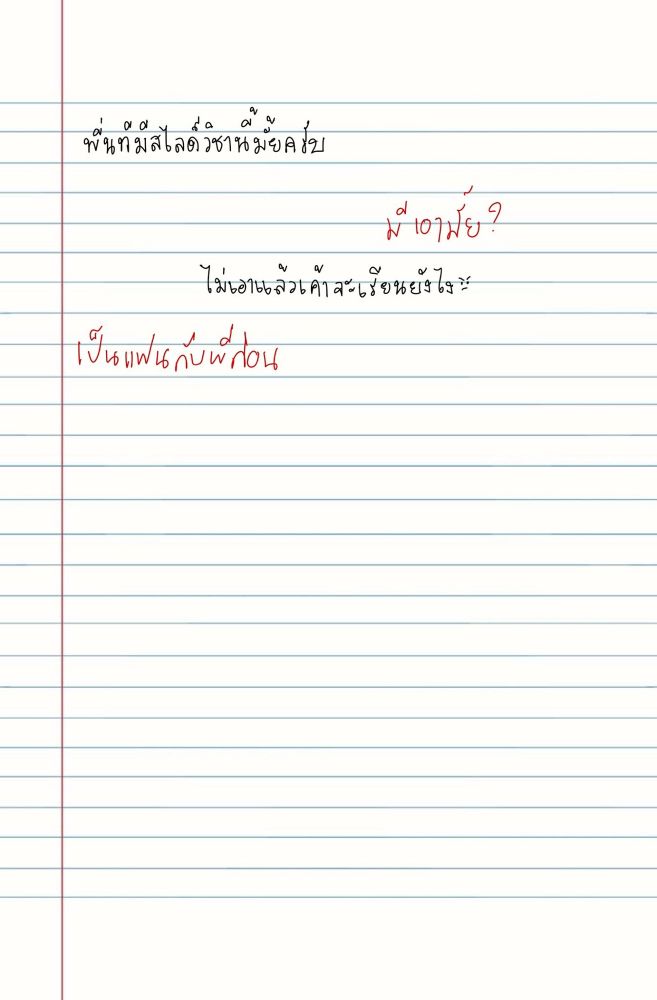 พี่นทีมีสไลด์วิชานี้มั้ยครับ
มี เอามั้ย?
ไม่เอาแล้วเค้าจะเรียนยังไง
เป็นแฟนกับพี่ก่อน